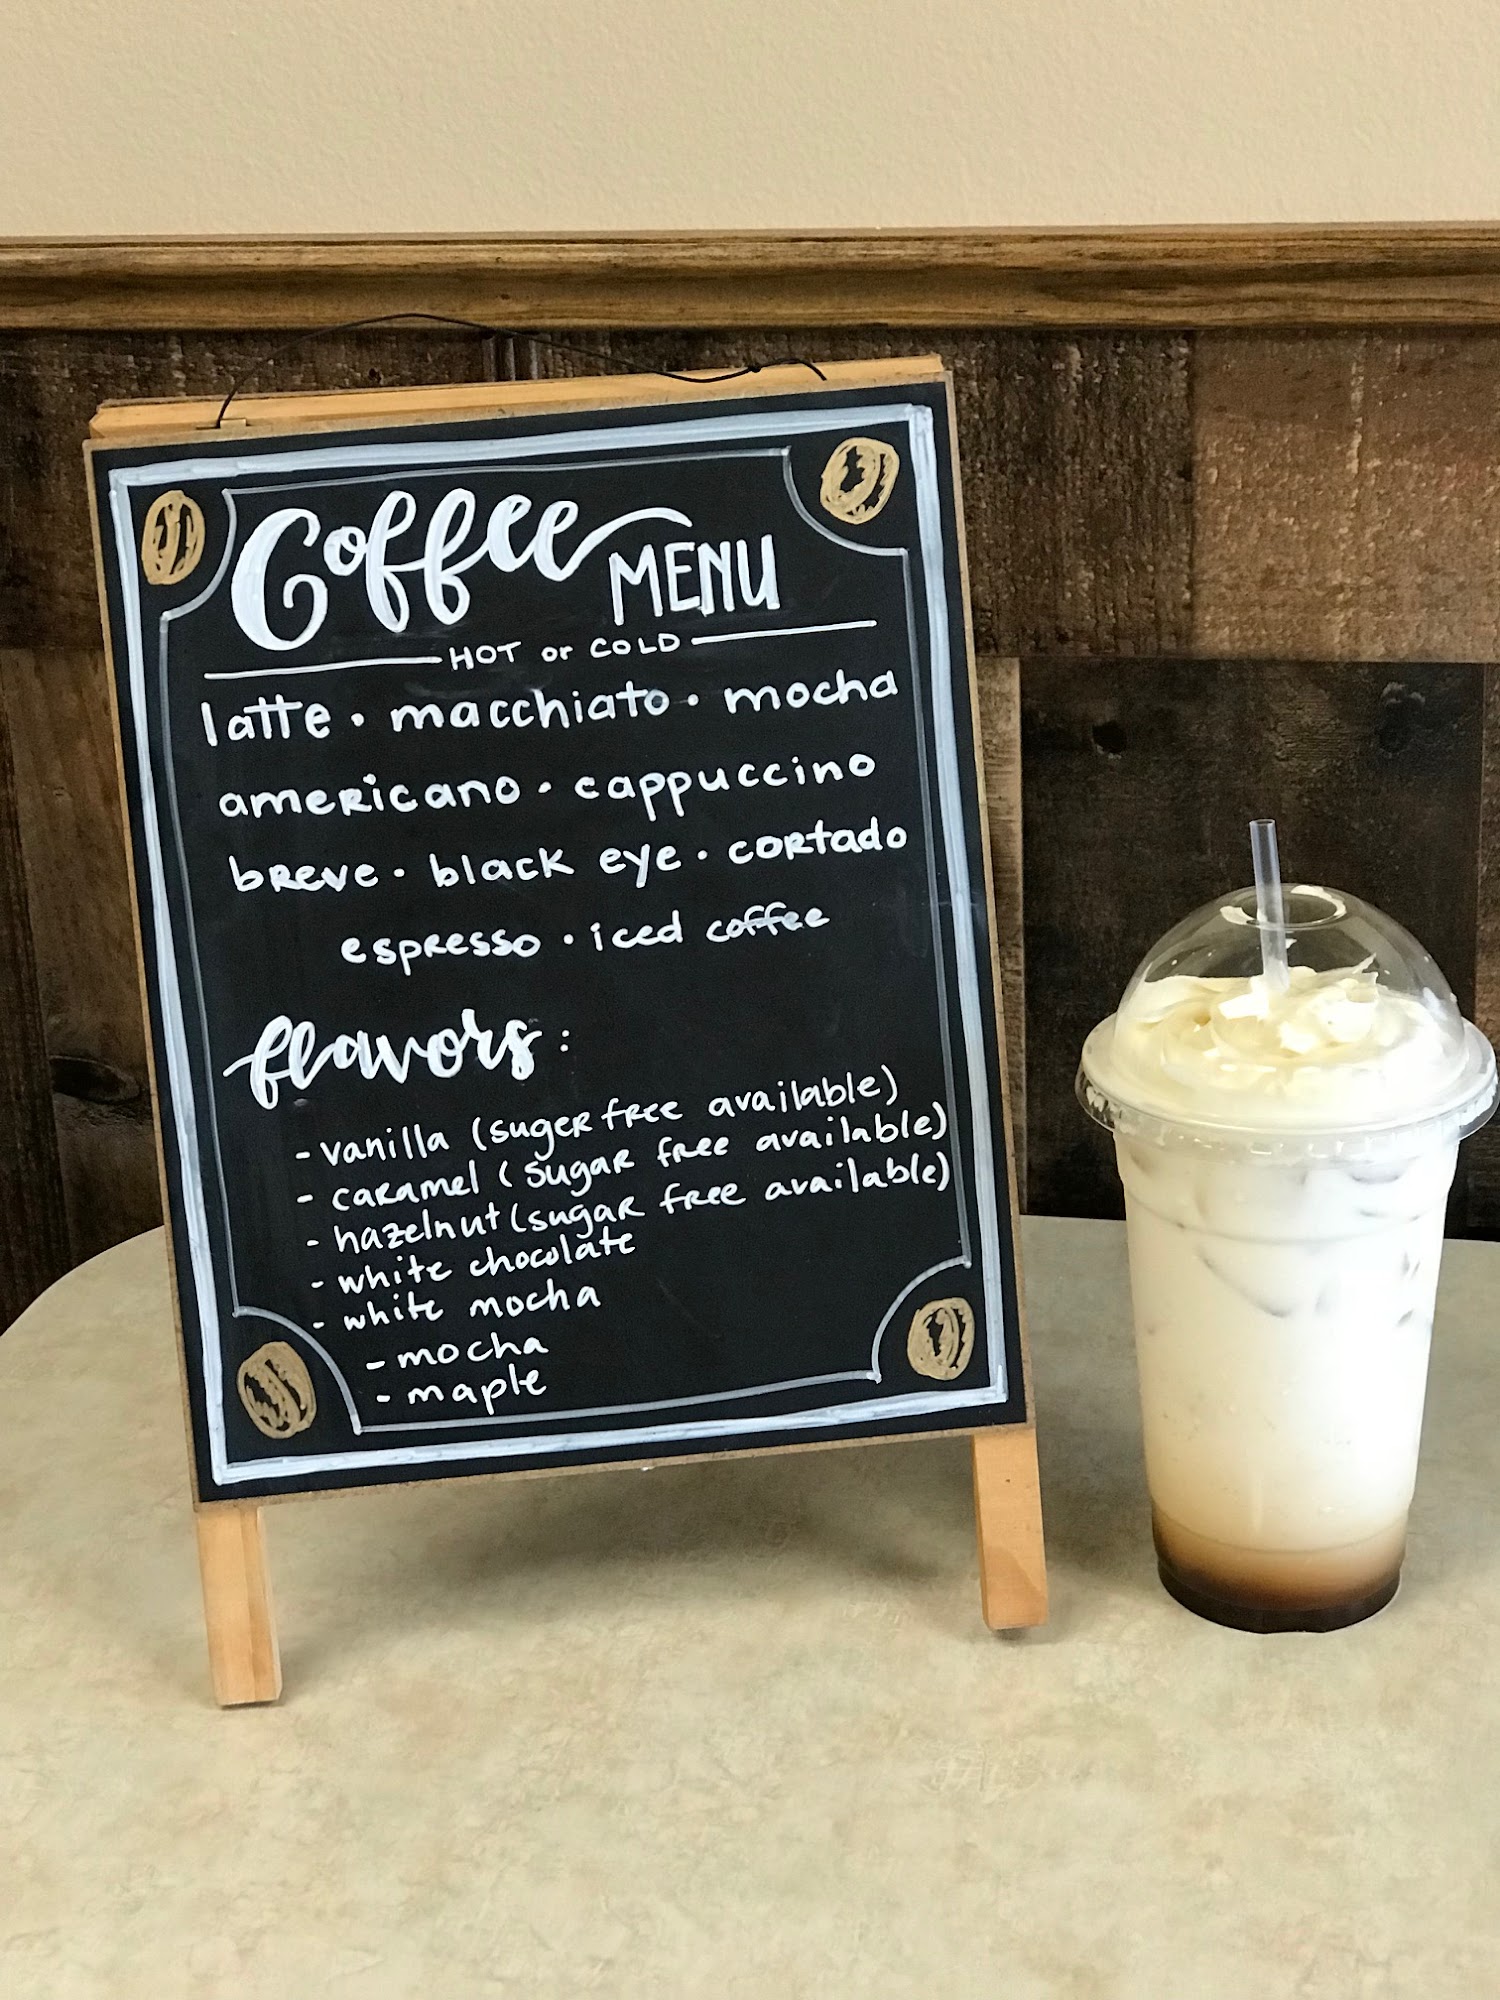 Coffee MENU
HOT or COLD
latte • macchiato • mocha
americano • cappuccino
breve • black eye • cortado
espresso • iced coffee
flavors:
- vanilla (suger free available)
- caramel (sugar free available)
- hazelnut (sugar free available)
- white chocolate
- white mocha
- mocha
- maple